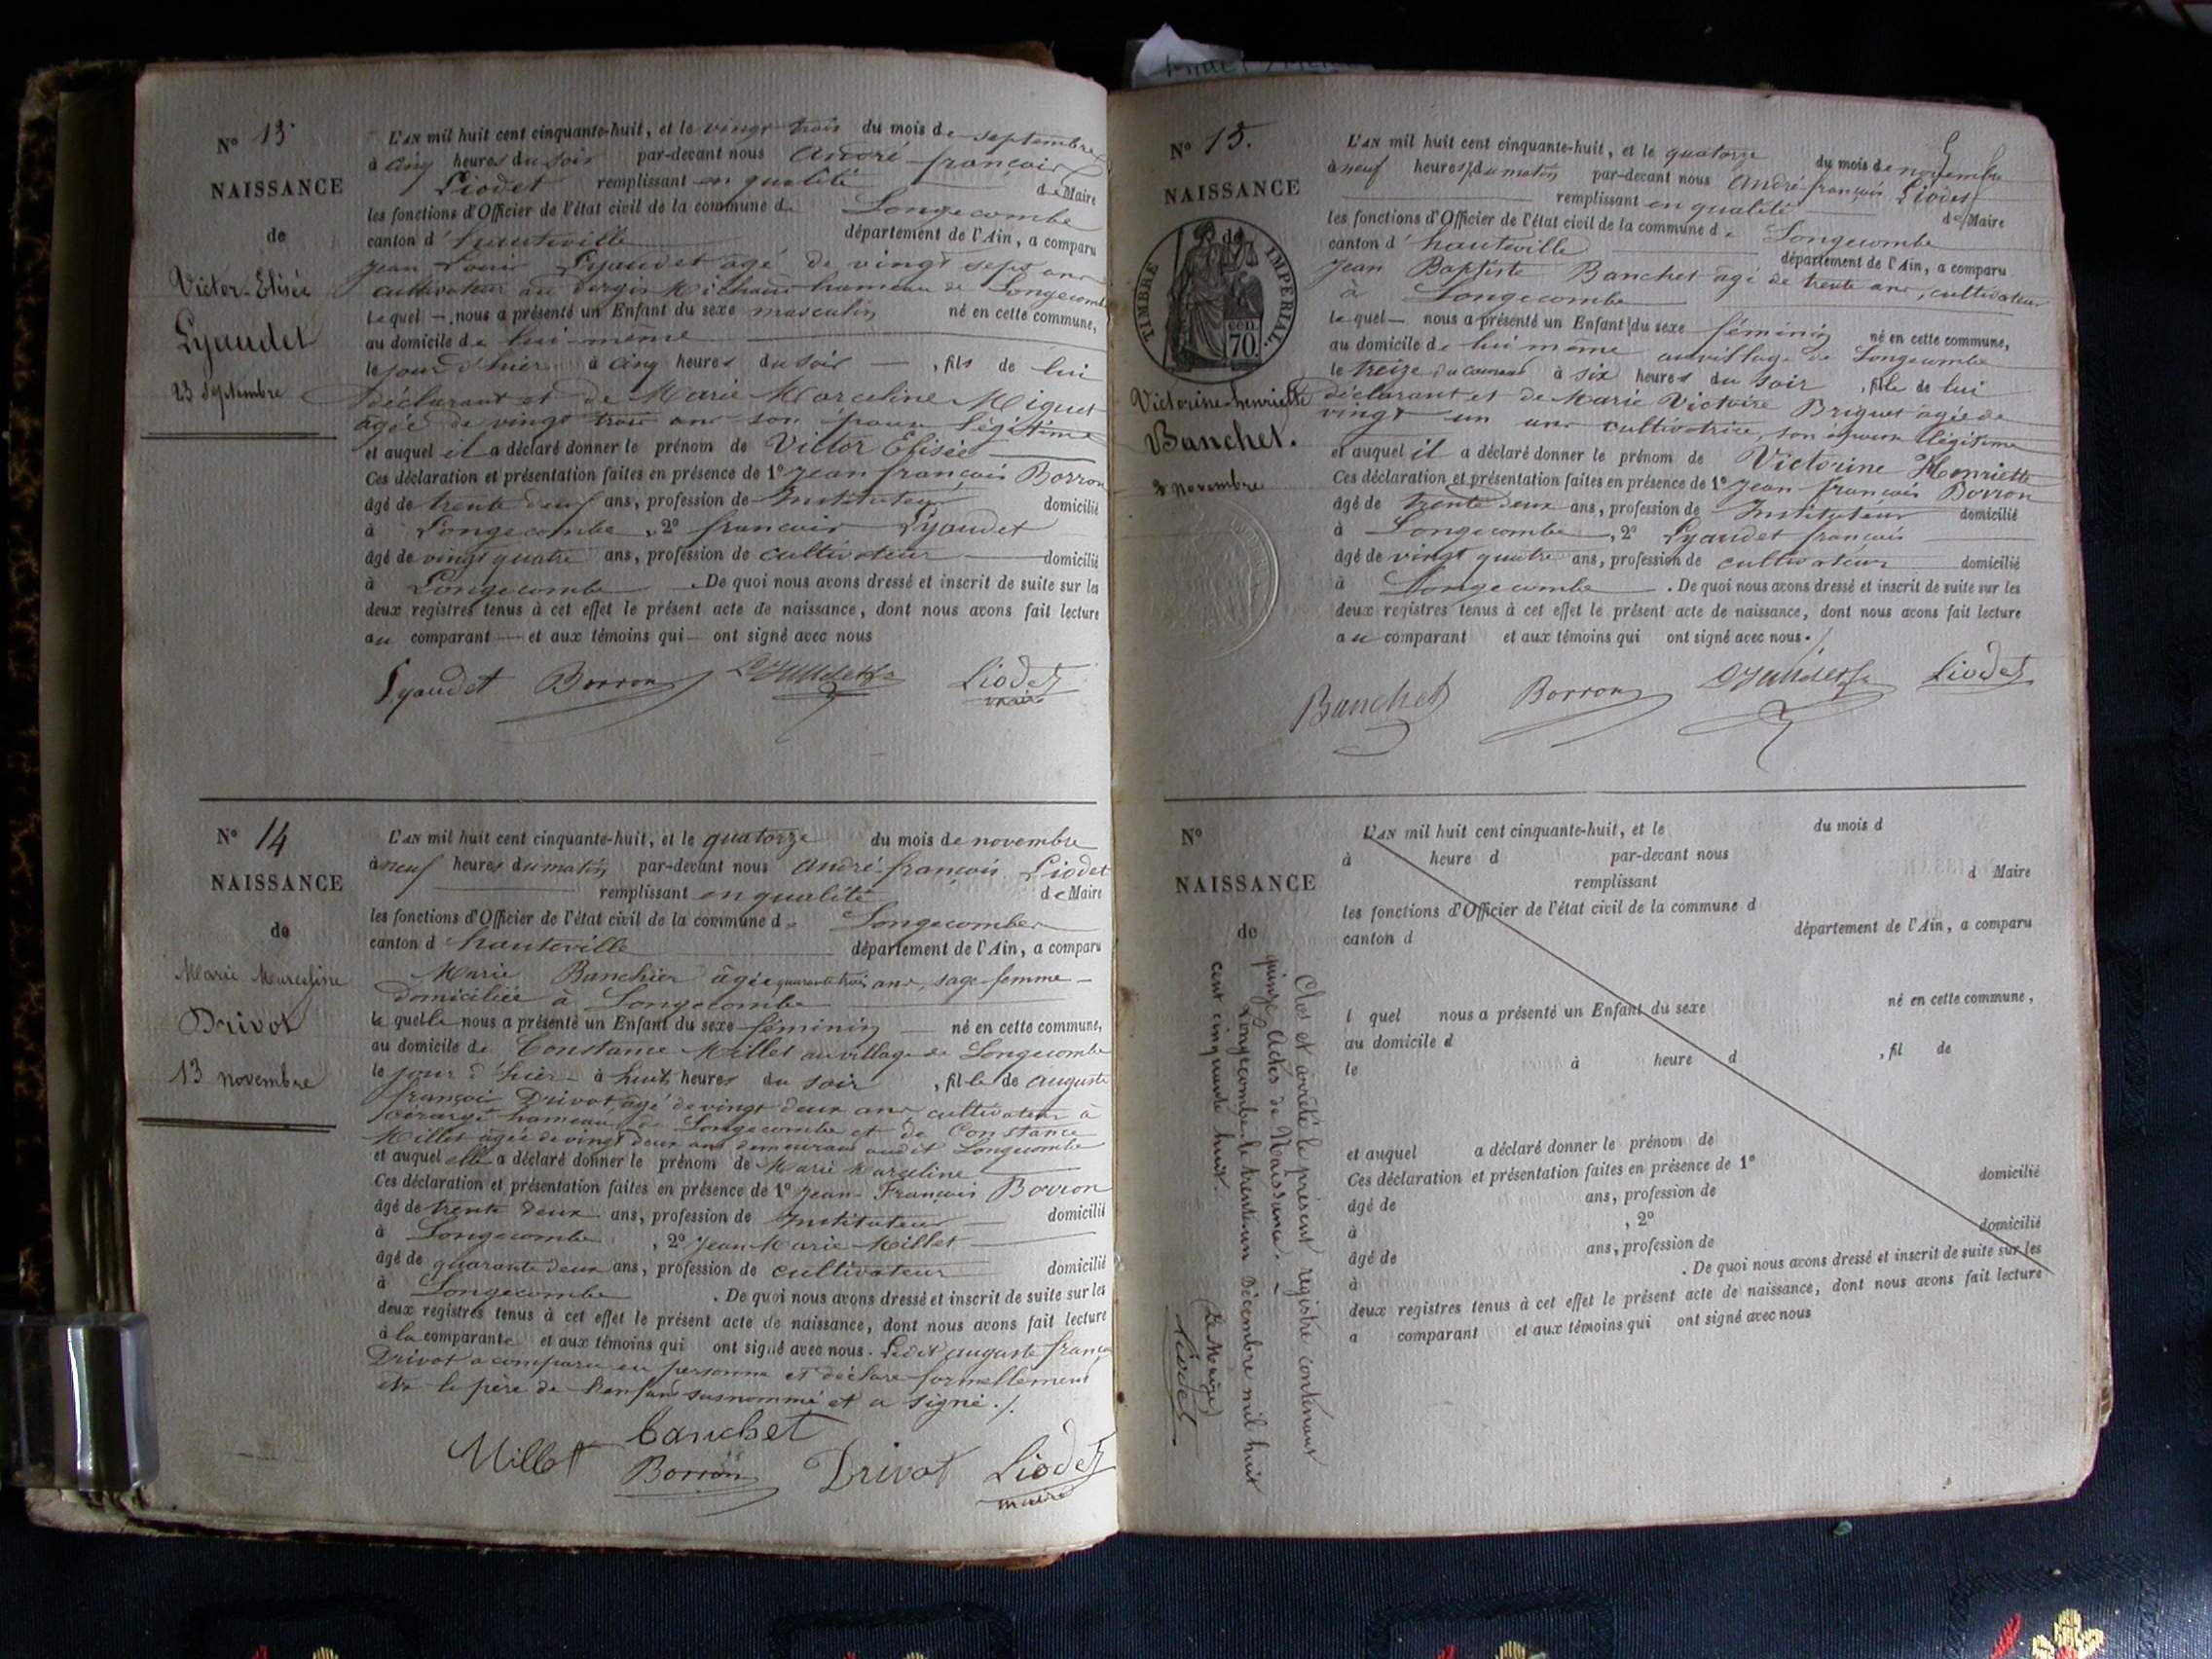 N° 13
NAISSANCE
de
Victor-Elisée
Lyaudet
23 septembre
L'AN mil huit cent cinquante-huit, et le vingt trois du mois de septembre
à cinq heures du soir par-devant nous André françois
Liodet remplissant en qualité de Maire
les fonctions d'Officier de l'état civil de la commune de Longecombe
canton d'hauteville département de l'Ain, a comparu
Jean Louis Lyaudet âgé de vingt sept ans
cultivateur au hameau de Longecombe
lequel nous a présenté un Enfant du sexe masculin né en cette commune,
au domicile de lui-même
le jour d'hier à cinq heures du soir, fils de lui
déclarant et de Marie Marceline Miguet
âgée de vingt trois ans son épouse légitime
et auquel il a déclaré donner le prénom de Victor Elisée
Ces déclaration et présentation faites en présence de 1° Jean françois Borron
âgé de trente deux ans, profession de Instituteur domicilié
à Longecombe, 2° françois Lyaudet
âgé de vingt quatre ans, profession de cultivateur domicilié
à Longecombe. De quoi nous avons dressé et inscrit de suite sur les
deux registres tenus à cet effet le présent acte de naissance, dont nous avons fait lecture
au comparant et aux témoins qui ont signé avec nous
Lyaudet Borron Lyaudet Liodet
maire
N° 14
NAISSANCE
de
Marie Marceline
Drivot
13 novembre
L'AN mil huit cent cinquante-huit, et le quatorze du mois de novembre
à neuf heures du matin par-devant nous André françois Liodet
remplissant en qualité de Maire
les fonctions d'Officier de l'état civil de la commune de Longecombe
canton d hauteville département de l'Ain, a comparu
Marie Banchier âgée quarante trois ans, sage-femme
domiciliée à Longecombe
laquelle nous a présenté un Enfant du sexe féminin né en cette commune,
au domicile de Constance Millet au village de Longecombe
le jour d'hier à huit heures du soir, fille de auguste
françois Drivot, âgé de vingt deux ans, cultivateur à
hameau de Longecombe et de Constance
Millet âgée de vingt deux ans demeurant audit Longecombe
et auquel elle a déclaré donner le prénom de Marie Marceline
Ces déclaration et présentation faites en présence de 1° Jean-François Borron
âgé de trente deux ans, profession de Instituteur domicilié
à Longecombe, 2° Jean Marie Millet
âgé de quarante deux ans, profession de cultivateur domicilié
à Longecombe. De quoi nous avons dressé et inscrit de suite sur les
deux registres tenus à cet effet le présent acte de naissance, dont nous avons fait lecture
à la comparante et aux témoins qui ont signé avec nous. Ledit auguste françois
Drivot a comparu en personne et déclare formellement
être le père de l'enfant susnommé et a signé ./.
Millet Banchet
Borron Drivot Liodet
maire
N° 15.
NAISSANCE
de
TIMBRE IMPERIAL.
70 cen.
Victorine-henriette
Banchet.
novembre
L'AN mil huit cent cinquante-huit, et le quatorze du mois de novembre
à neuf heures du matin par-devant nous André françois Liodet
remplissant en qualité de Maire
les fonctions d'Officier de l'état civil de la commune de Longecombe
canton d'hauteville département de l'Ain, a comparu
Jean Baptiste Banchet âgé de trente ans, cultivateur
à Longecombe
lequel nous a présenté un Enfant du sexe féminin né en cette commune,
au domicile de lui même au village de Longecombe
le treize du courant à six heures du soir, fille de lui
déclarant et de Marie Victoire Briguet âgée de
vingt un ans cultivatrice, son épouse légitime
et auquel il a déclaré donner le prénom de Victorine Henriette
Ces déclaration et présentation faites en présence de 1° Jean françois Borron
âgé de trente deux ans, profession de Instituteur domicilié
à Longecombe, 2° Lyaudet françois
âgé de vingt quatre ans, profession de cultivateur domicilié
à Longecombe. De quoi nous avons dressé et inscrit de suite sur les
deux registres tenus à cet effet le présent acte de naissance, dont nous avons fait lecture
au comparant et aux témoins qui ont signé avec nous./
Banchet Borron Lyaudet Liodet
N°
NAISSANCE
de
L'AN mil huit cent cinquante-huit, et le du mois d
à heure d par-devant nous
remplissant d Maire
les fonctions d'Officier de l'état civil de la commune d
canton d département de l'Ain, a comparu
l quel nous a présenté un Enfant du sexe né en cette commune,
au domicile d
le à heure d, fil de
et auquel a déclaré donner le prénom de
Ces déclaration et présentation faites en présence de 1°
âgé de ans, profession de domicilié
à, 2°
âgé de ans, profession de domicilié
à. De quoi nous avons dressé et inscrit de suite sur les
deux registres tenus à cet effet le présent acte de naissance, dont nous avons fait lecture
a comparant et aux témoins qui ont signé avec nous
Clos et arrêté le présent registre contenant
quinze Actes de Naissance.
Longecombe le trente un Décembre mil huit
cent cinquante huit.
Le Maire,
Liodet